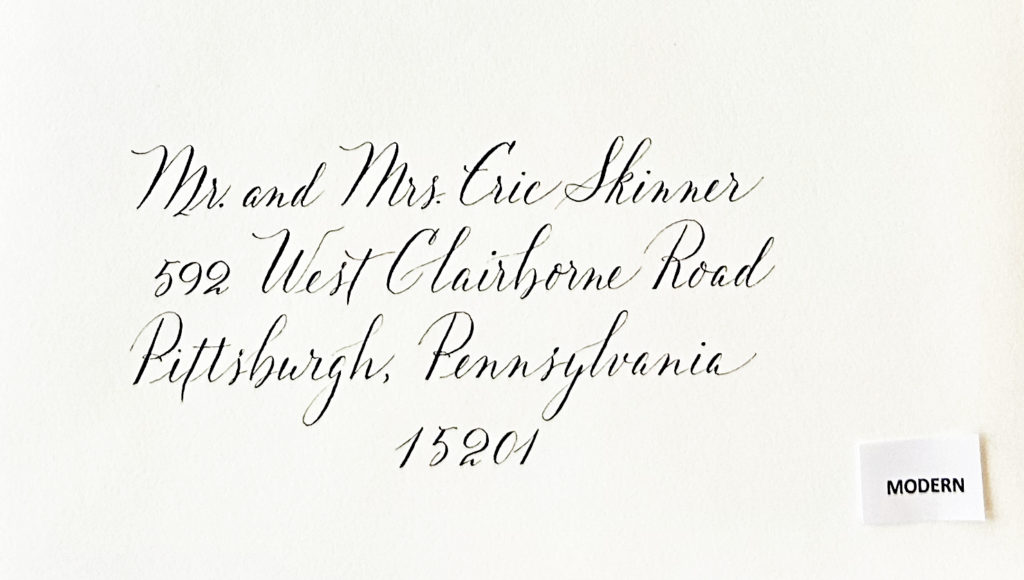 Mr. and Mrs. Eric Skinner
592 West Clairborne Road
Pittsburgh, Pennsylvania
15201
MODERN